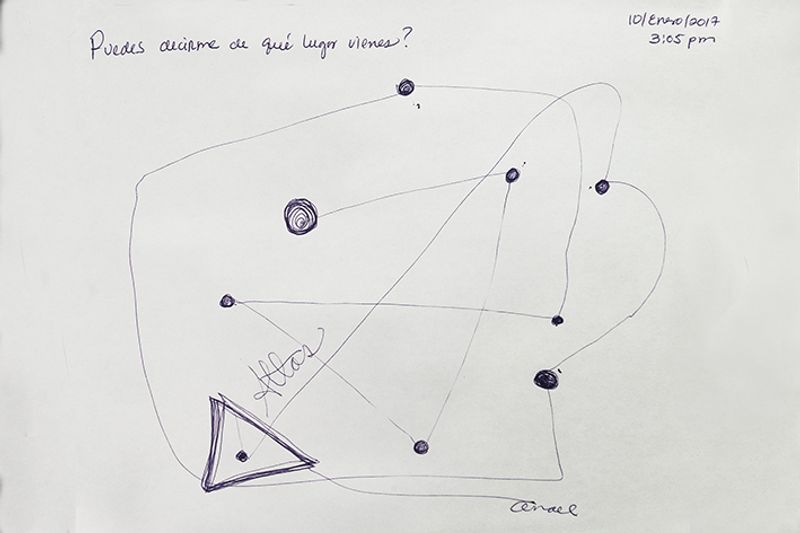 Puedes decirme de qué lugar vienes?
10/Enero/2017
3:05 pm
Atlas